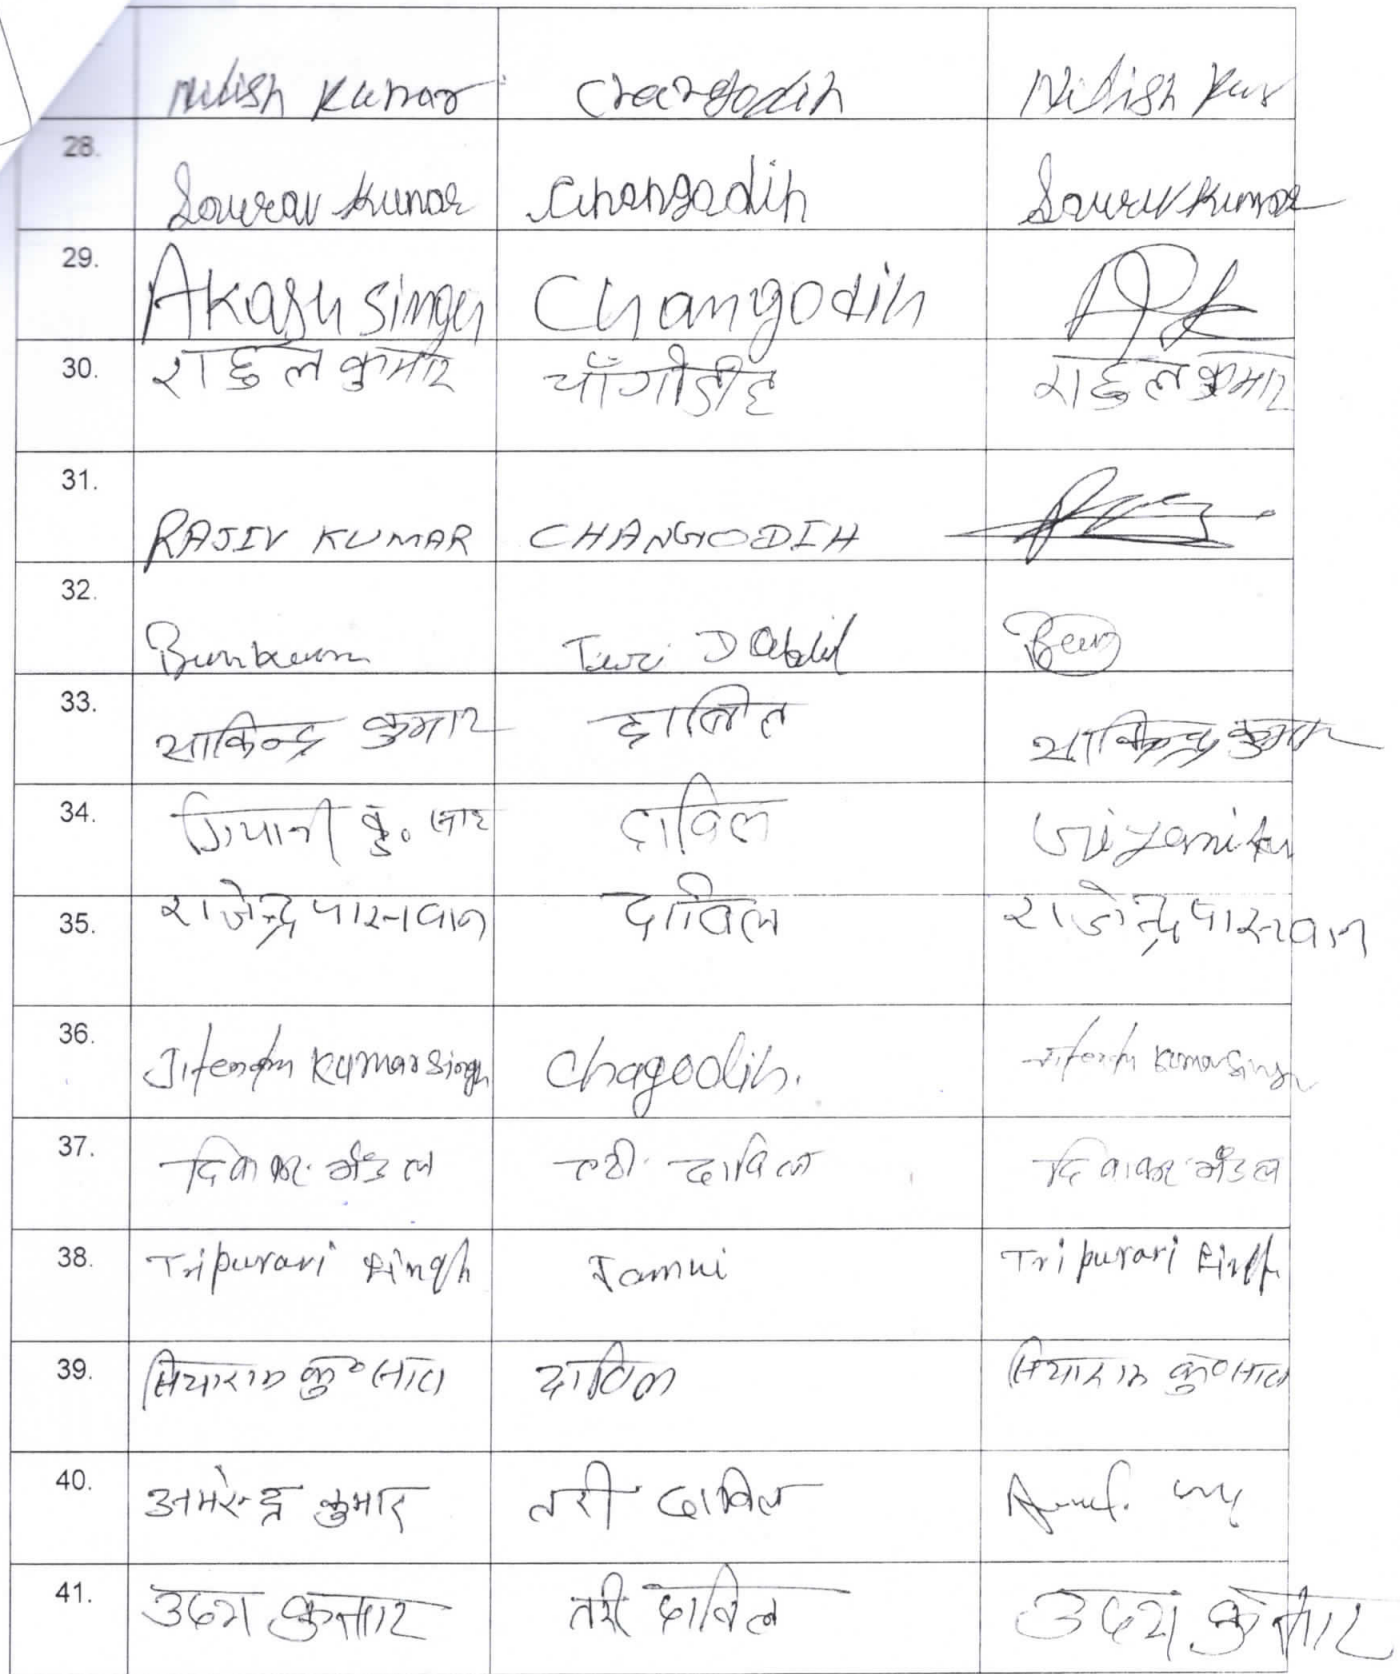 Nitish Kumar Chargodih Nitish Kur
28.
Sourav Kumar Changodih Sourav Kumar
29.
Akash Singh Changodih
30.
राहुल कुमार चाँगोडीह राहुल कुमार
31.
RAJIV KUMAR CHANGODIH
32.
33.
कुमार कुमार
34.
दाविल
35.
राजेन्द्र पासवान दाविल राजेन्द्र पासवान
36.
Jitendra Kumar Singh Chagodih. Jitendra Kumar Singh
37.
दिवाकर मंडल तरी दाविल दिवाकर मंडल
38.
Tripurari Singh Jamui Tripurari Singh
39.
सियाराम कु० साव दाविल सियाराम कु० साव
40.
अमरेन्द्र कुमार तरी दाविल
41.
उदय कुमार तरी दाविल उदय कुमार